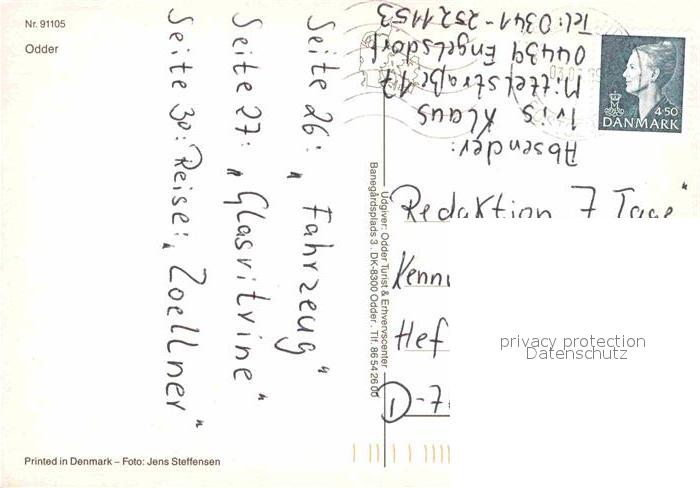 Nr. 91105
Odder
Seite 26: „Fahrzeug"
Seite 27: „Glasvitrine"
Seite 30: Reise: „Zoellner"
Udgiver: Odder Turist & Erhvervscenter
Banegårdsplads 3 . DK-8300 Odder . Tlf. 86 54 26 00
Absender:
Iris Klaus
Mittelstraße 17
04439 Engelsdorf
Tel: 0341-2521153
4·50
DANMARK
Redaktion 7 Tage"
Kenn
Hef
D-7
privacy protection
Datenschutz
Printed in Denmark – Foto: Jens Steffensen